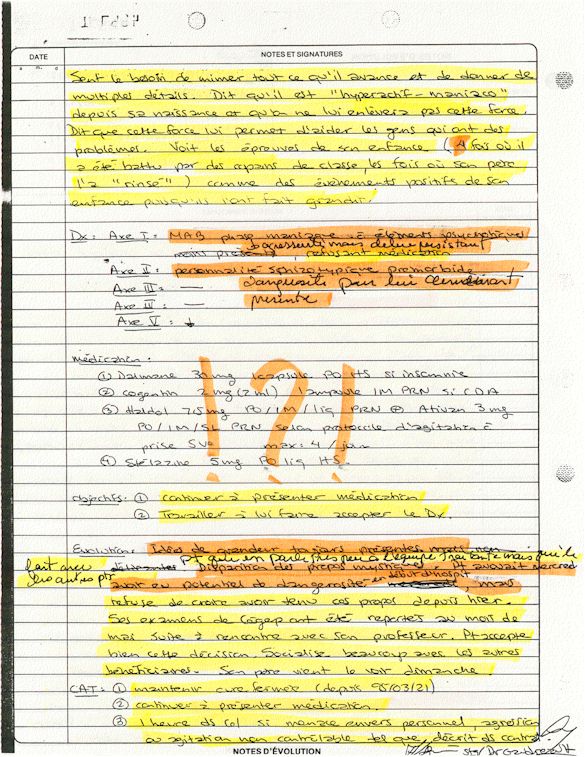 DATE
NOTES ET SIGNATURES
Sent le besoin de mimer tout ce qu'il avance et de donner de
multiples détails. Dit qu'il est "hyperactif-maniaco"
depuis sa naissance et qu'on ne lui enlèvera pas cette force.
Dit que cette force lui permet d'aider les gens qui ont des
problèmes. Voit les épreuves de son enfance (4 fois où il
a été battu par des copains de classe, les fois où son père
l'a "rincé") comme des évènements positifs de son
enfance puisqu'ils l'ont fait grandir.
Dx: Axe I: MAB phase maniaque à éléments psychotiques
mais délire persistant
moins présents, refusant médication
Axe II: personnalité schizotypique prémorbide
Axe III: — dangerosité pour lui
Axe IV: —
Axe V: ↓
Médication:
① Dalmane 30 mg 1 capsule PO HS si insomnie
② Cogentin 2 mg (2 ml) 1 ampoule IM PRN si
③ Haldol 7,5 mg PO/IM/liq PRN ⊕ Ativan 3 mg
PO/IM/SL PRN selon protocole d'agitation à
prise max: 4/jour
④ Stelazine 5 mg PO liq HS.
!?!
Objectifs: ① continuer à présenter médication
② Travailler à lui faire accepter le Dx.
Evolution: Idées de grandeur toujours présentes mais non
Pt qui en parle très peu à l'équipe mais
Disparition des propos mystiques. Pt avouait mercredi
avoir potentiel de dangerosité en début d'hospit, mais
refuse de croire avoir tenu ces propos depuis hier.
Ses examens de Cégep ont été reportés au mois de
mai suite à rencontre avec son professeur. Pt accepte
bien cette décision. Socialise beaucoup avec les autres
bénéficiaires. Son père vient le voir dimanche
CAT: ① maintenir cure fermée (depuis 95/03/21)
② continuer à présenter médication.
③ 1 heure ds col si menace envers personnel, agression
ou agitation non contrôlable tel que décrit ds contrat
NOTES D'ÉVOLUTION